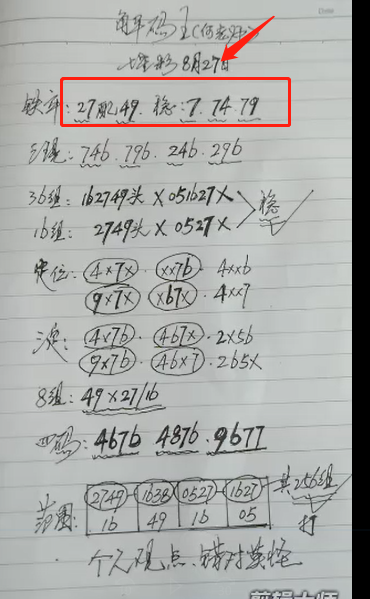 Date
七星彩 8月27日
铁率: 27配49. 稳: 7. 74. 79
三现: 746. 796. 246. 296
36组: 162749头 X 051627X
16组: 2749头 X 0527X 稳
定位: 4X7X · XX76 · 4XX6
9X7X · X67X · 4XX7
三定: 4X76 · 467X · 2X56
9X76 · 46X7 · 265X
8组: 49X27/16
四码: 4676 4876 . 9677
范围: 2749 1638 0527 1627 共256组
16 49 16 05 打
个人观点、错对莫怪
剪辑大师